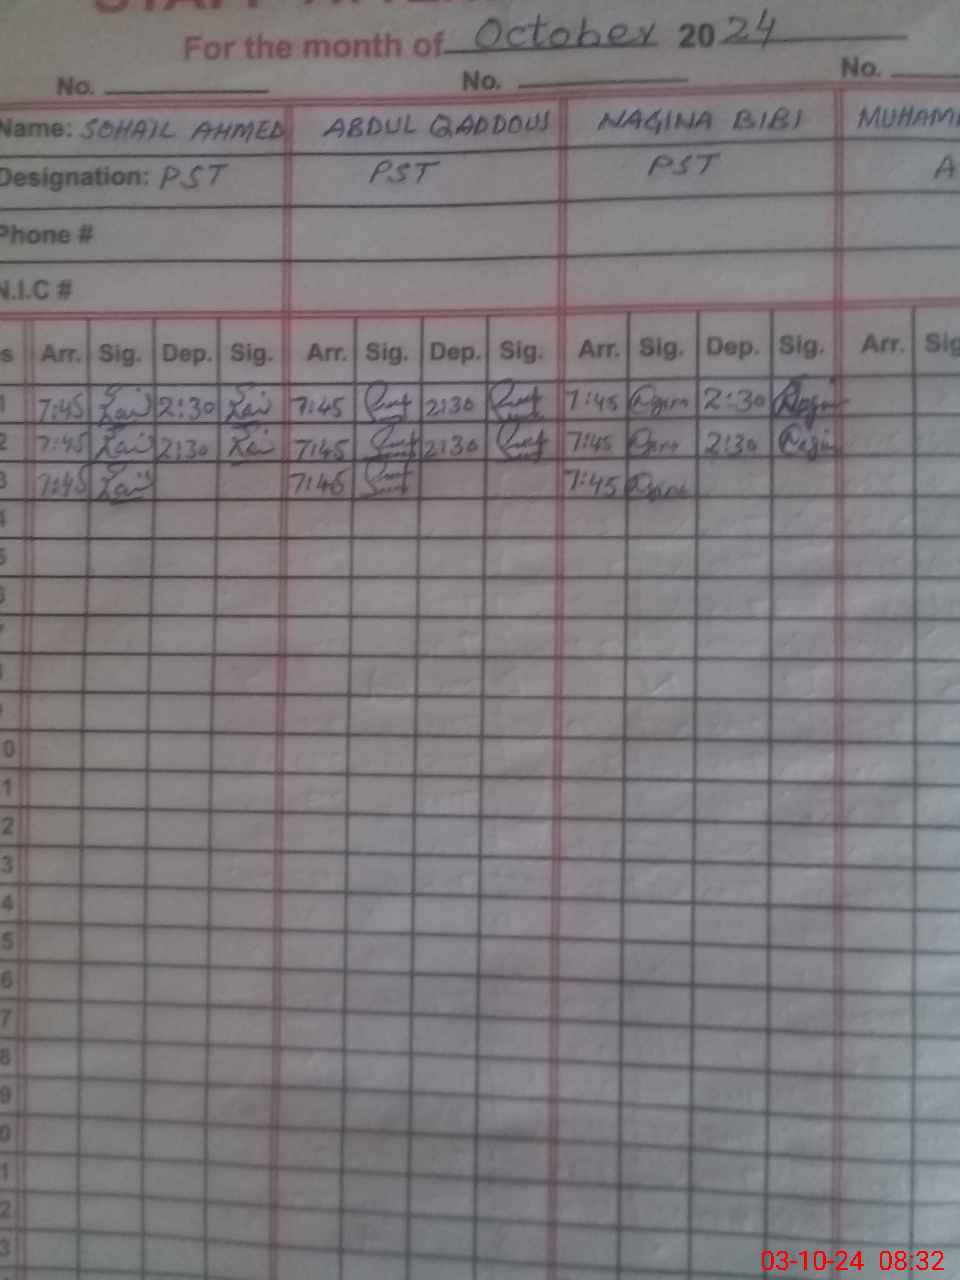 For the month of October 2024
No. No. No.
Name: SOHAIL AHMED ABDUL QADDOUS NAGINA BIBI
Designation: PST PST PST A
Phone #
N.I.C #
s Arr. Sig. Dep. Sig. Arr. Sig. Dep. Sig. Arr. Sig. Dep. Sig. Arr. Sig
1 7:45 2:30 7:45 2:30 7:45 2:30
2 7:45 2:30 7:45 2:30 7:45 2:30
3 7:45 7:45 7:45
4
5
6
7
8
0
1
2
3
4
5
6
7
8
9
0
1
2
3
03-10-24 08:32